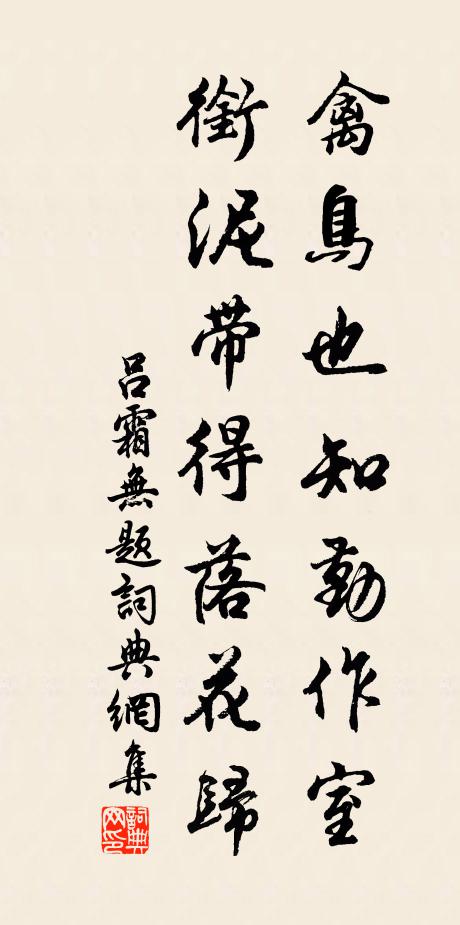 禽鳥也知勤作室
銜泥帶得落花歸
呂霜無題詞典網集
詞典網印